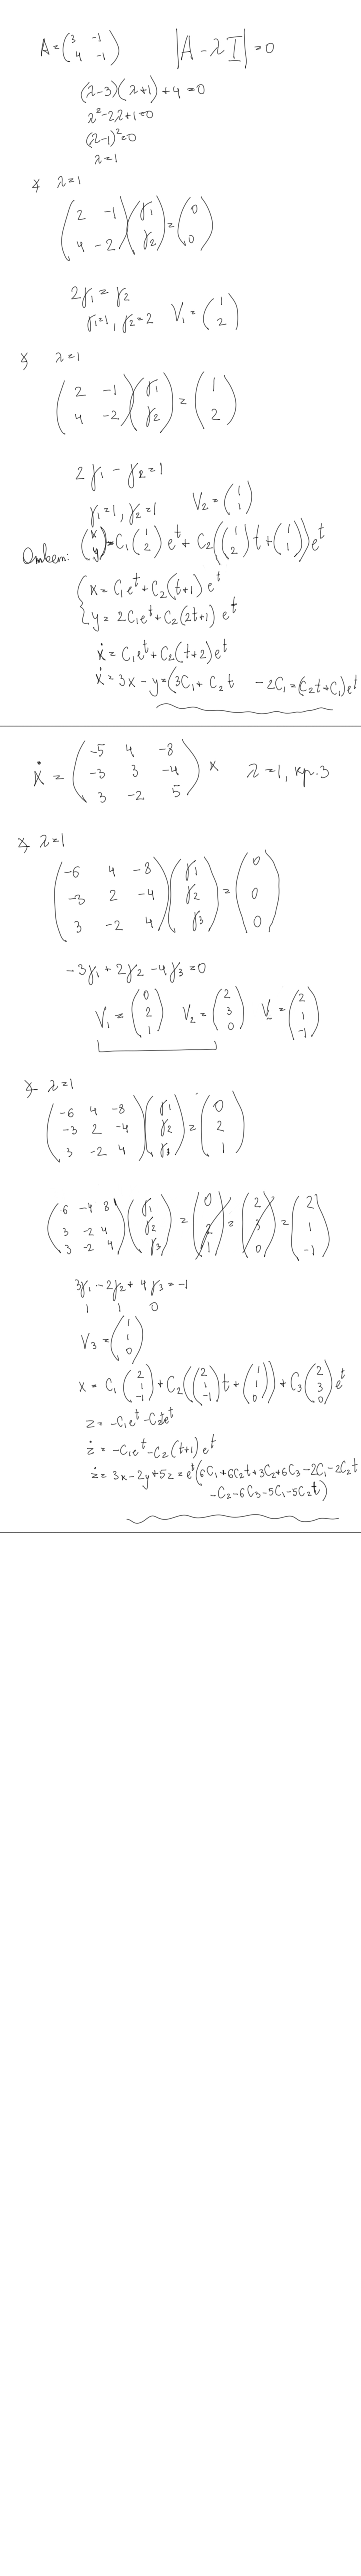 A = (3 -1; 4 -1) |A - λI| = 0
(λ-3)(λ+1) + 4 = 0
λ² - 2λ + 1 = 0
(λ-1)² = 0
λ = 1
∢ λ = 1
(2 -1; 4 -2)(γ₁; γ₂) = (0; 0)
2γ₁ = γ₂
γ₁ = 1, γ₂ = 2 V₁ = (1; 2)
∢ λ = 1
(2 -1; 4 -2)(γ₁; γ₂) = (1; 2)
2γ₁ - γ₂ = 1
γ₁ = 1, γ₂ = 1 V₂ = (1; 1)
Ответ: (x; y) = C₁(1; 2)eᵗ + C₂((1; 2)t + (1; 1))eᵗ
{x = C₁eᵗ + C₂(t+1)eᵗ
y = 2C₁eᵗ + C₂(2t+1)eᵗ
ẋ = C₁eᵗ + C₂(t+2)eᵗ
ẋ = 3x - y = (3C₁ + C₂t - 2C₁ = (C₂t + C₁)eᵗ
ẋ = (-5 4 -8; -3 3 -4; 3 -2 5) x λ = 1, кр. 3
∢ λ = 1
(-6 4 -8; -3 2 -4; 3 -2 4)(γ₁; γ₂; γ₃) = (0; 0; 0)
-3γ₁ + 2γ₂ - 4γ₃ = 0
V₁ = (0; 2; 1) V₂ = (2; 3; 0) V = (2; 1; -1)
∢ λ = 1
(-6 4 -8; -3 2 -4; 3 -2 4)(γ₁; γ₂; γ₃) = (0; 2; 1)
(6 -4 8; 3 -2 4; 3 -2 4)(γ₁; γ₂; γ₃) = (0; 2; 1) = (2; 3; 0) = (2; 1; -1)
3γ₁ - 2γ₂ + 4γ₃ = -1
1 1 0
V₃ = (1; 1; 0)
x = C₁(2; 1; -1) + C₂((2; 1; -1)t + (1; 1; 0)) + C₃(2; 3; 0)eᵗ
z = -C₁eᵗ - C₂teᵗ
ż = -C₁eᵗ - C₂(t+1)eᵗ
ż = 3x - 2y + 5z = eᵗ(6C₁ + 6C₂t + 3C₂ + 6C₃ - 2C₁ - 2C₂t
- C₂ - 6C₃ - 5C₁ - 5C₂t)